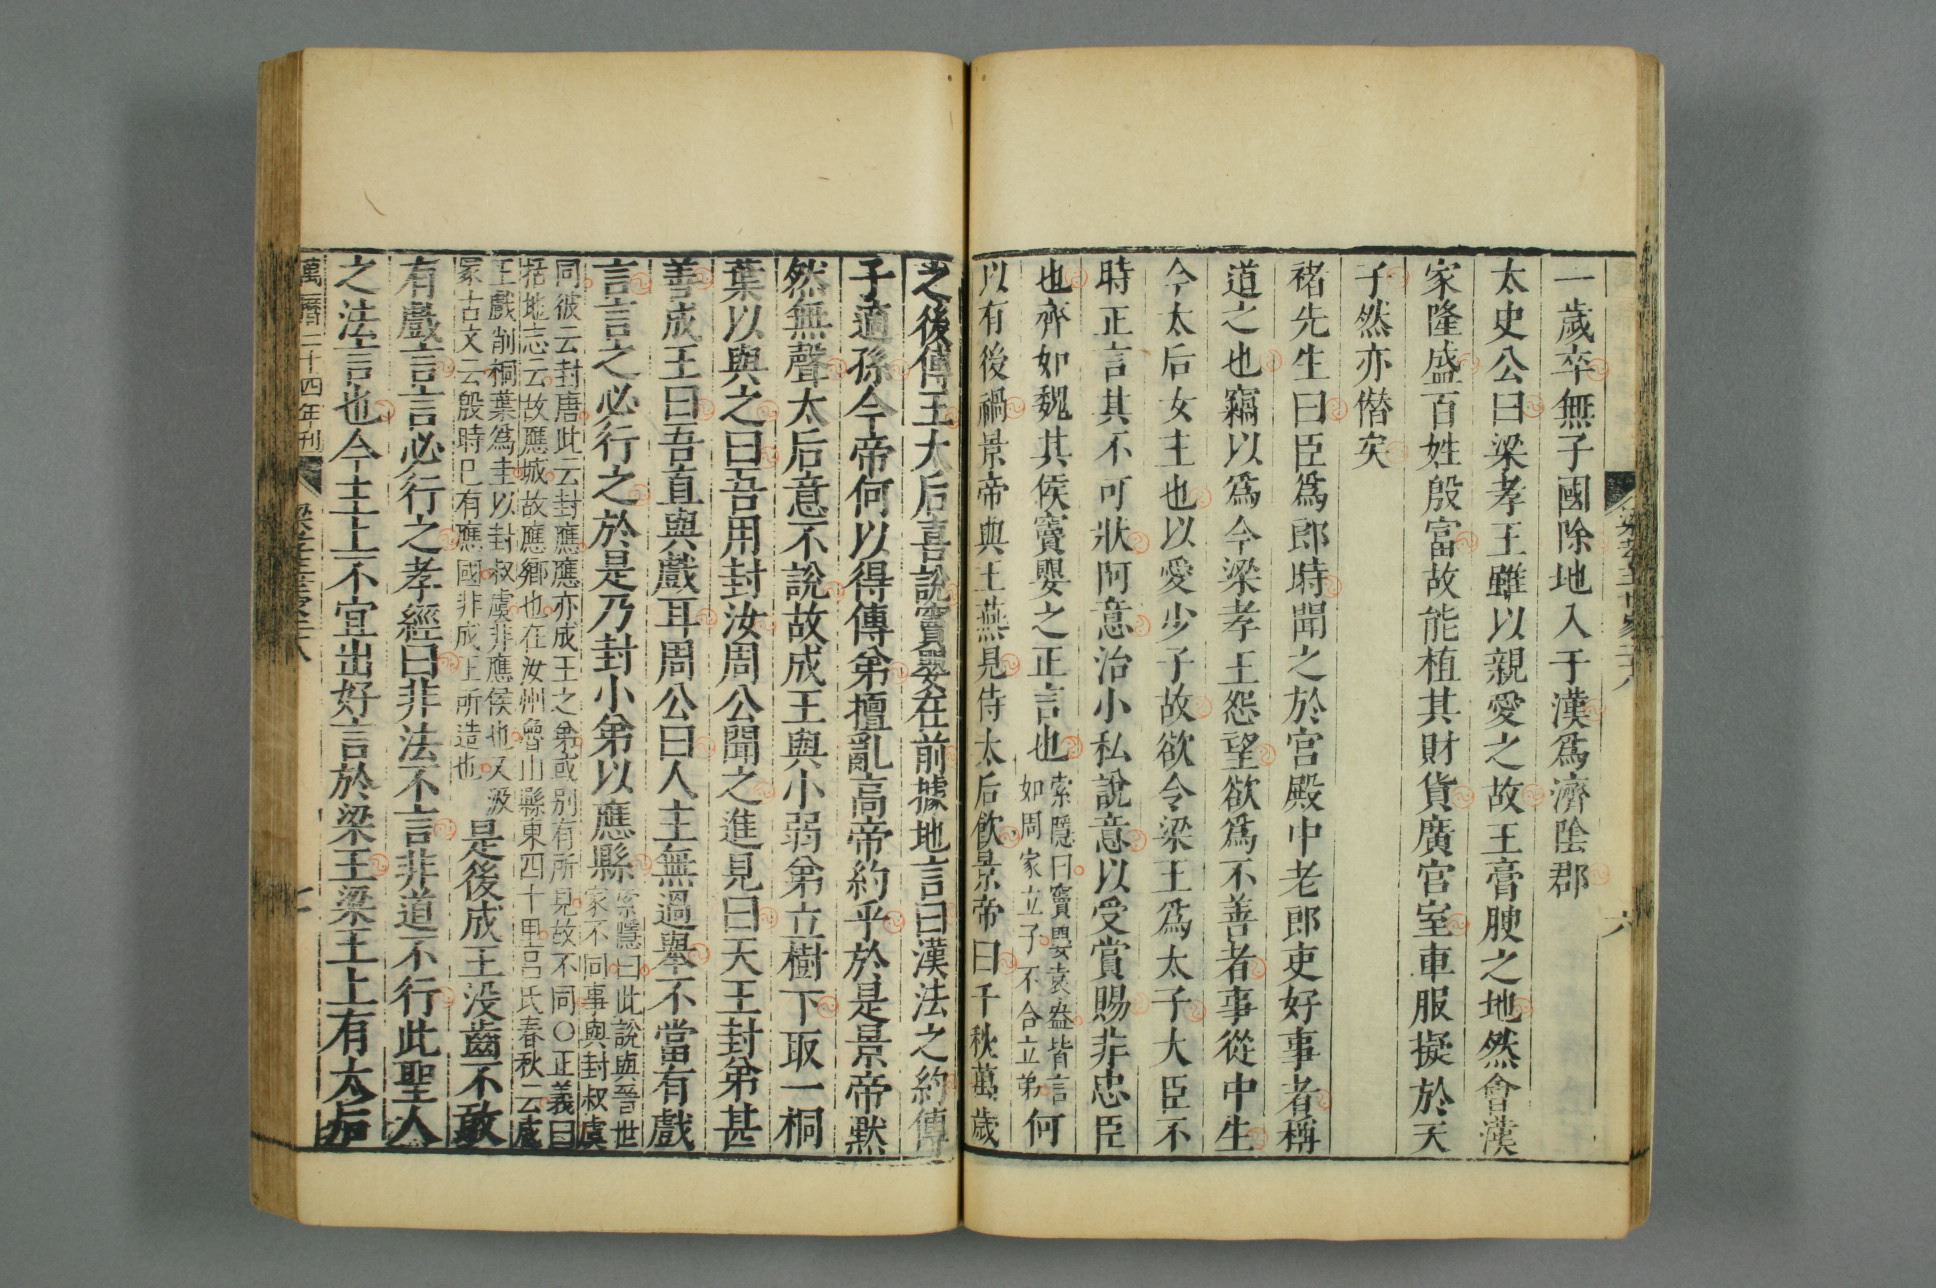 一歲卒無子國除地入于漢爲濟陰郡
太史公曰梁孝王雖以親愛之故王膏腴之地然會漢
家隆盛百姓殷富故能植其財貨廣宮室車服擬於天
子然亦僭矣
褚先生曰臣爲郎時聞之於宮殿中老郎吏好事者稱
道之也竊以爲令梁孝王怨望欲爲不善者事從中生
今太后女主也以愛少子故欲令梁王爲太子大臣不
時正言其不可狀阿意治小私說意以受賞賜非忠臣
也齊如魏其侯竇嬰之正言也索隱曰竇嬰袁盎皆言如周家立子不合立弟何
以有後禍景帝與王燕見侍太后飲景帝曰千秋萬歲
之後傳王太后喜說竇嬰在前據地言曰漢法之約傳
子適孫今帝何以得傳弟擅亂高帝約乎於是景帝默
然無聲太后意不說故成王與小弱弟立樹下取一桐
葉以與之曰吾用封汝周公聞之進見曰天王封弟甚
善成王曰吾直與戲耳周公曰人主無過舉不當有戲
言言之必行之於是乃封小弟以應縣索隱曰此說與晉世家不同事與封叔虞
同彼云封唐此云封應應亦成王之弟或別有所見故不同〇正義曰
括地志云故應城故應鄉也在汝州魯山縣東四十里呂氏春秋云成
王戲削桐葉爲圭以封叔虞非應侯也又汲
冢古文云殷時已有應國非成王所造也是後成王没齒不敢
有戲言言必行之孝經曰非法不言非道不行此聖人
之法言也今主上不宜出好言於梁王梁王上有太后
萬曆二十四年刊 梁孝王世家二十八 七